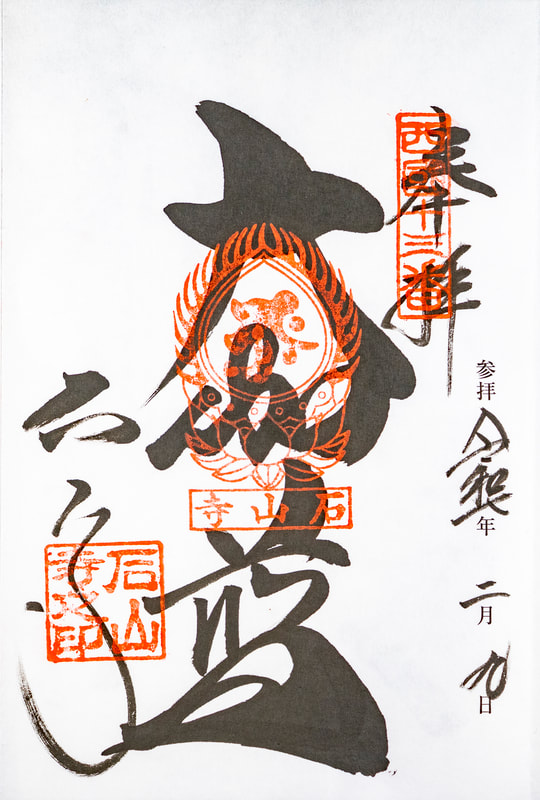 奉拝
西國十三番
参拝 令和年 二月九日
大伽藍
石山寺
石山寺
石山寺之印